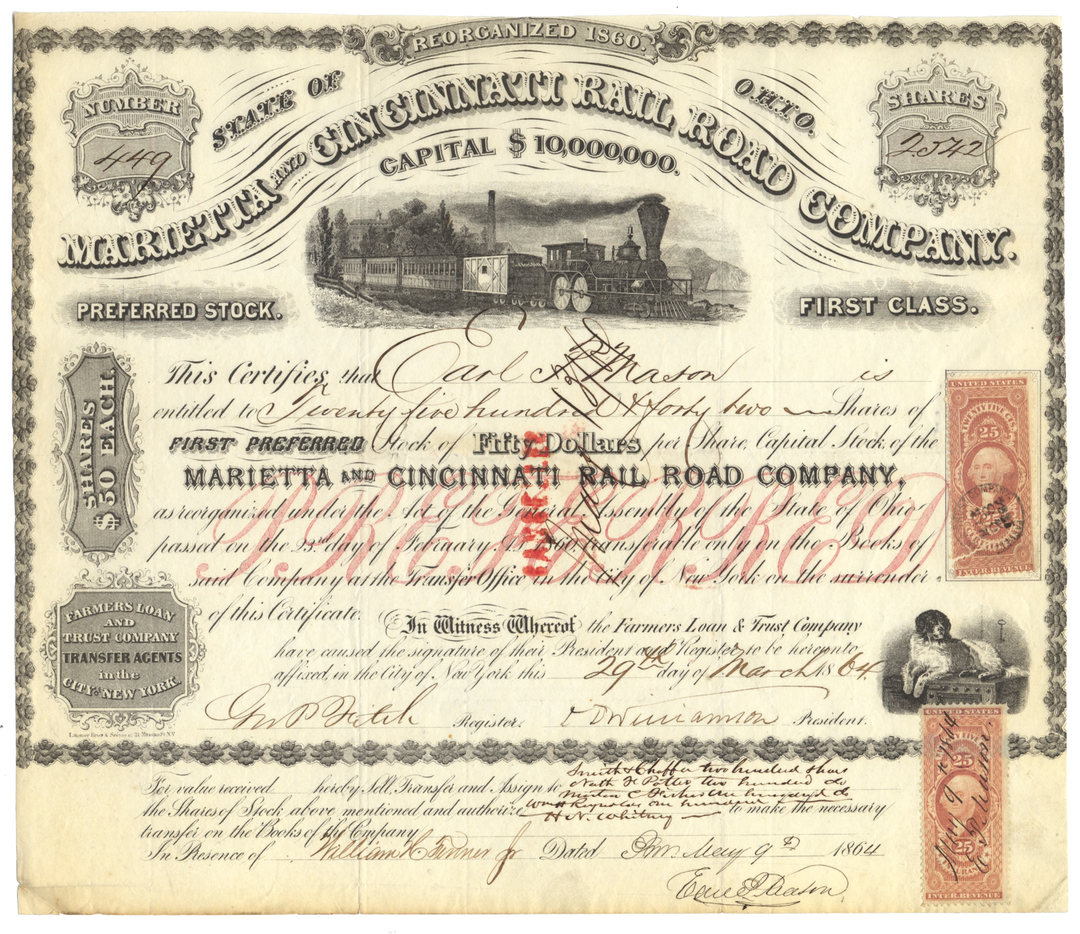 REORGANIZED 1860.
NUMBER
449
STATE OF OHIO.
SHARES
2542
MARIETTA AND CINCINNATI RAIL ROAD COMPANY.
CAPITAL $10,000,000.
PREFERRED STOCK.
FIRST CLASS.
SHARES
$50 EACH.
This Certifies that Earl P. Mason is
entitled to Twenty five hundred & forty two Shares of
FIRST PREFERRED Stock of Fifty Dollars per Share, Capital Stock of the
MARIETTA AND CINCINNATI RAIL ROAD COMPANY,
as reorganized under the Act of the General Assembly of the State of Ohio
passed on the day of February, transferable only on the Books of
said Company at the Transfer Office in the City of New York on the surrender
of this Certificate.
PREFERRED
UNITED STATES
TWENTY FIVE CTS.
25
INTER. REVENUE
FARMERS LOAN
AND
TRUST COMPANY
TRANSFER AGENTS
in the
CITY OF NEW YORK.
In Witness Whereof the Farmers Loan & Trust Company
have caused the signature of their President and Register to be hereunto
affixed in the City of New York this 29th day of March 1864
Geo P Fitch Register. D D Williamson President.
For value received hereby Sell, Transfer and Assign to Smith & two hundred
Nath two hundred do
C one hundred do
the Shares of Stock above mentioned and authorize Wm H Reynolds one hundred
H. N. Whitney to make the necessary
transfer on the Books of the Company
In Presence of William H Jr Dated May 9th 1864
Earl P Mason
UNITED STATES
25
INTER. REVENUE
May 9
E P Mason